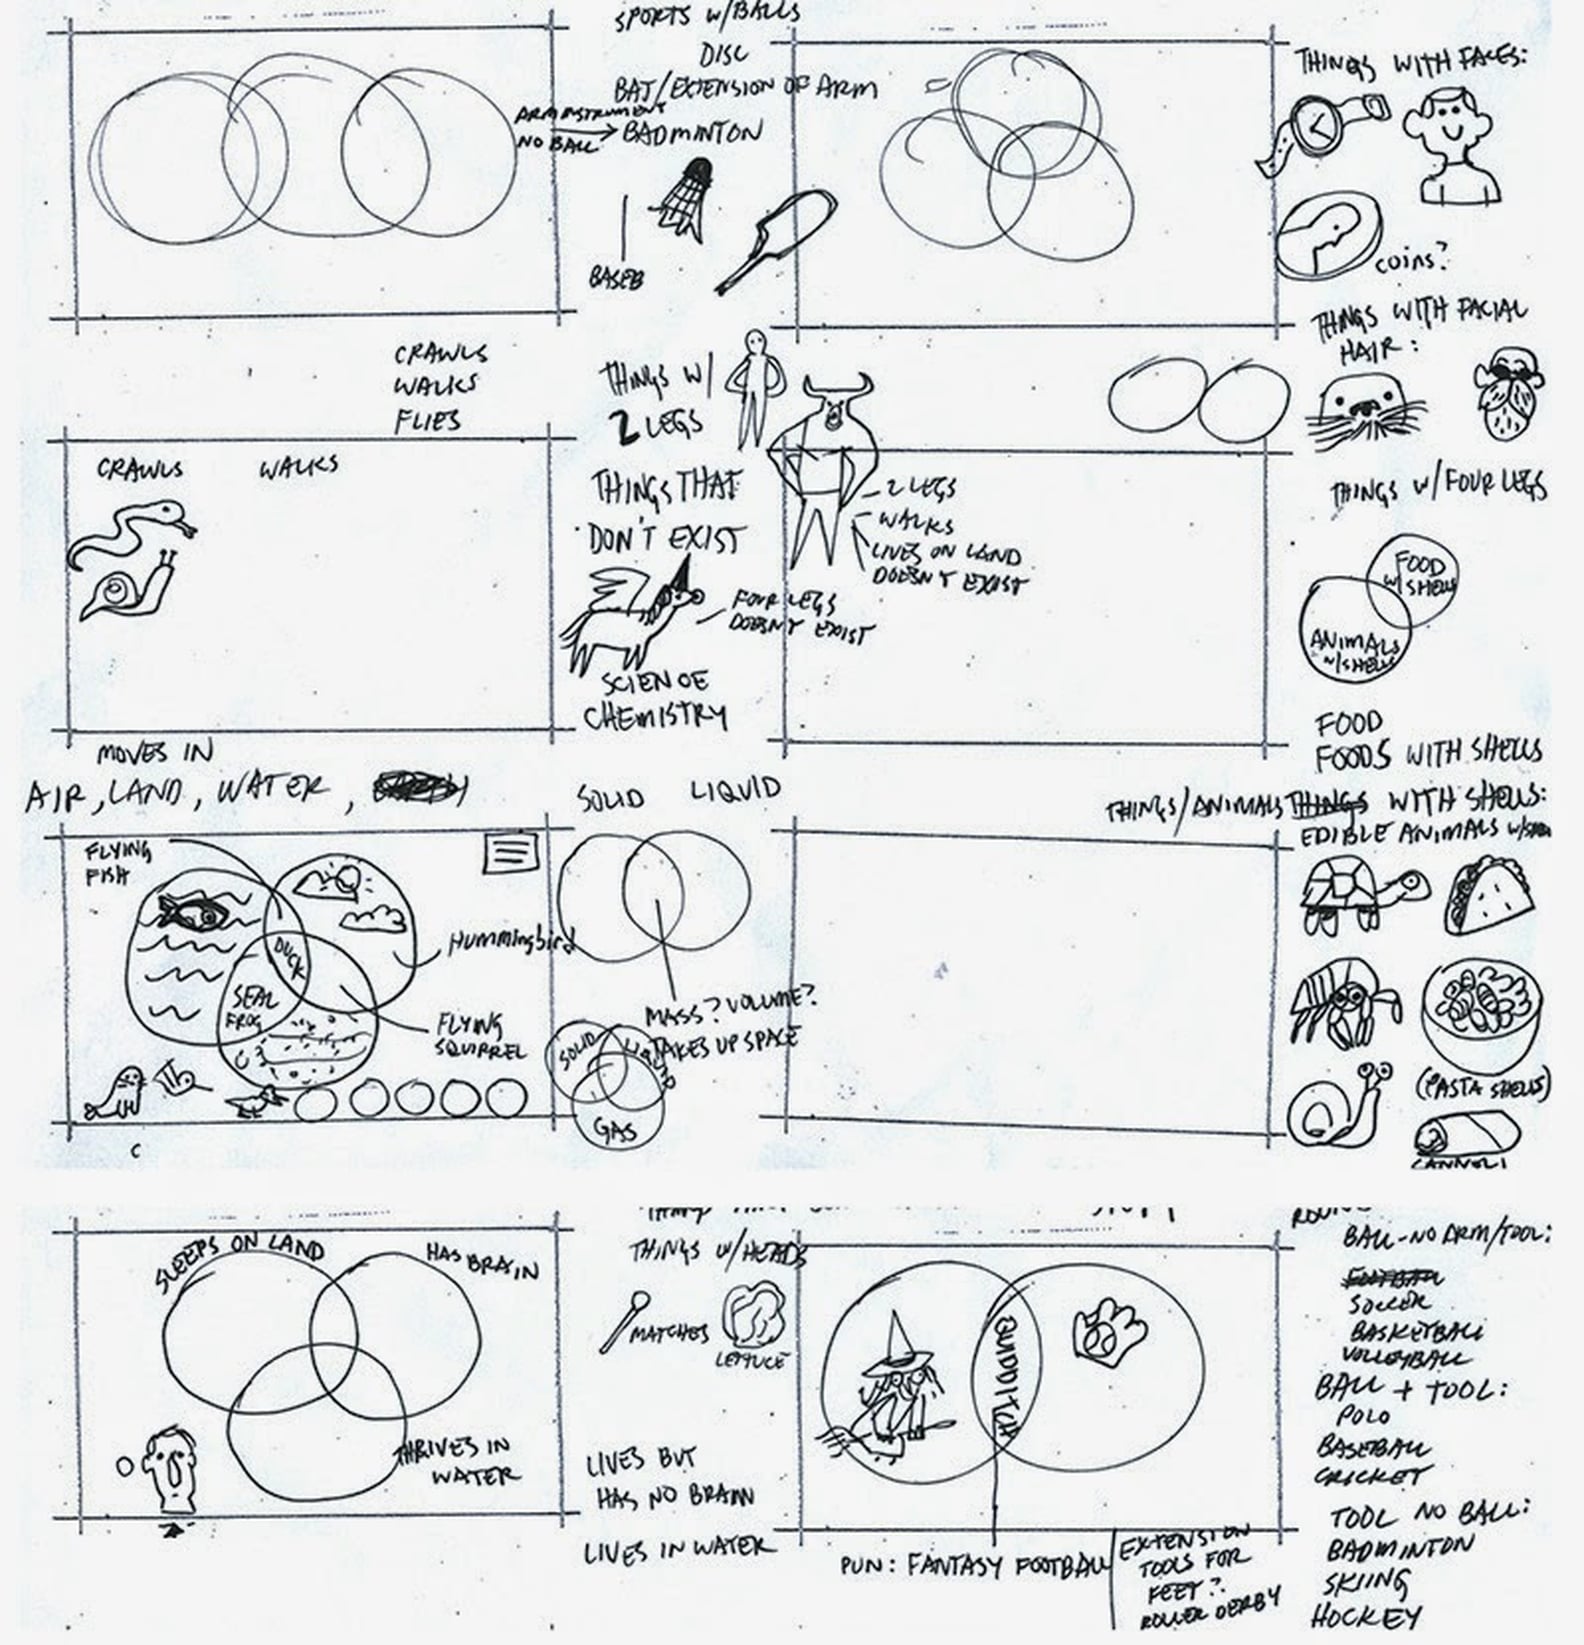 SPORTS W/BALLS
DISC
BAT/EXTENSION OF ARM
ARM INSTRUMENT
NO BALL
BADMINTON
BASEB
THINGS WITH FACES:
coins?
THINGS WITH FACIAL
HAIR:
CRAWLS
WALKS
FLIES
THINGS W/
2 LEGS
CRAWLS
WALKS
THINGS THAT
DON'T EXIST
- 2 LEGS
- WALKS
LIVES ON LAND
DOESN'T EXIST
THINGS W/FOUR LEGS
FOOD
W/SHELLS
ANIMALS
W/SHELLS
FOUR LEGS
DOESN'T EXIST
SCIENCE
CHEMISTRY
FOOD
FOODS WITH SHELLS
MOVES IN
AIR, LAND, WATER,
SOLID
LIQUID
THINGS/ANIMALS THINGS WITH SHELLS:
EDIBLE ANIMALS
FLYING
FISH
Hummingbird
DUCK
SEAL
FROG
FLYING
SQUIRREL
MASS? VOLUME?
TAKES UP SPACE
SOLID
LIQUID
GAS
(PASTA SHELLS)
CANNOLI
C
SLEEPS ON LAND
HAS BRAIN
THRIVES IN
WATER
THINGS W/HEADS
MATCHES
LETTUCE
LIVES BUT
HAS NO BRAIN
LIVES IN WATER
QUIDDITCH
PUN: FANTASY FOOTBALL
EXTENSION
TOOLS FOR
FEET?
ROLLER DERBY
BALL-NO ARM/TOOL:
FOOTBALL
SOCCER
BASKETBALL
VOLLEYBALL
BALL + TOOL:
POLO
BASEBALL
CRICKET
TOOL NO BALL:
BADMINTON
SKIING
HOCKEY